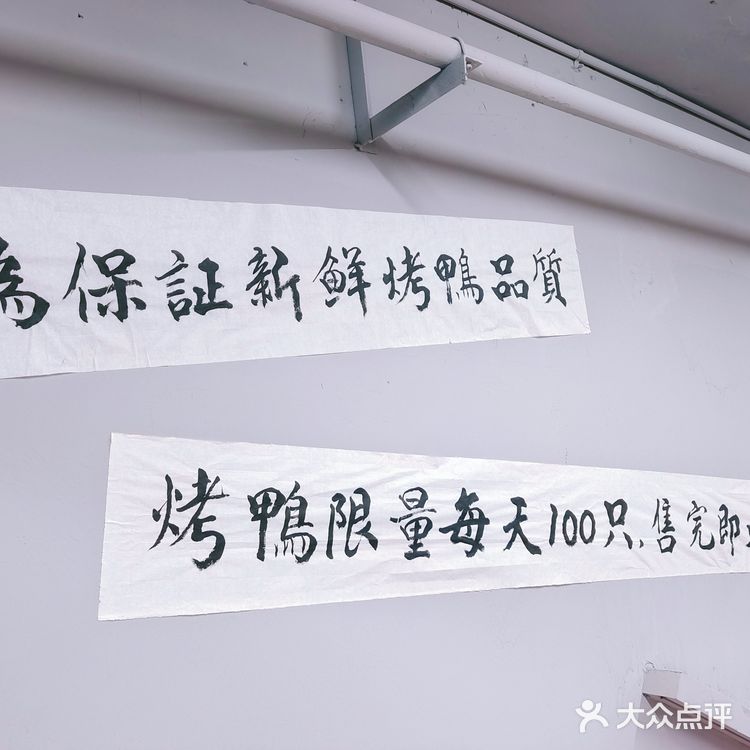 為保証新鮮烤鴨品質
烤鴨限量每天100只,售完即
大众点评